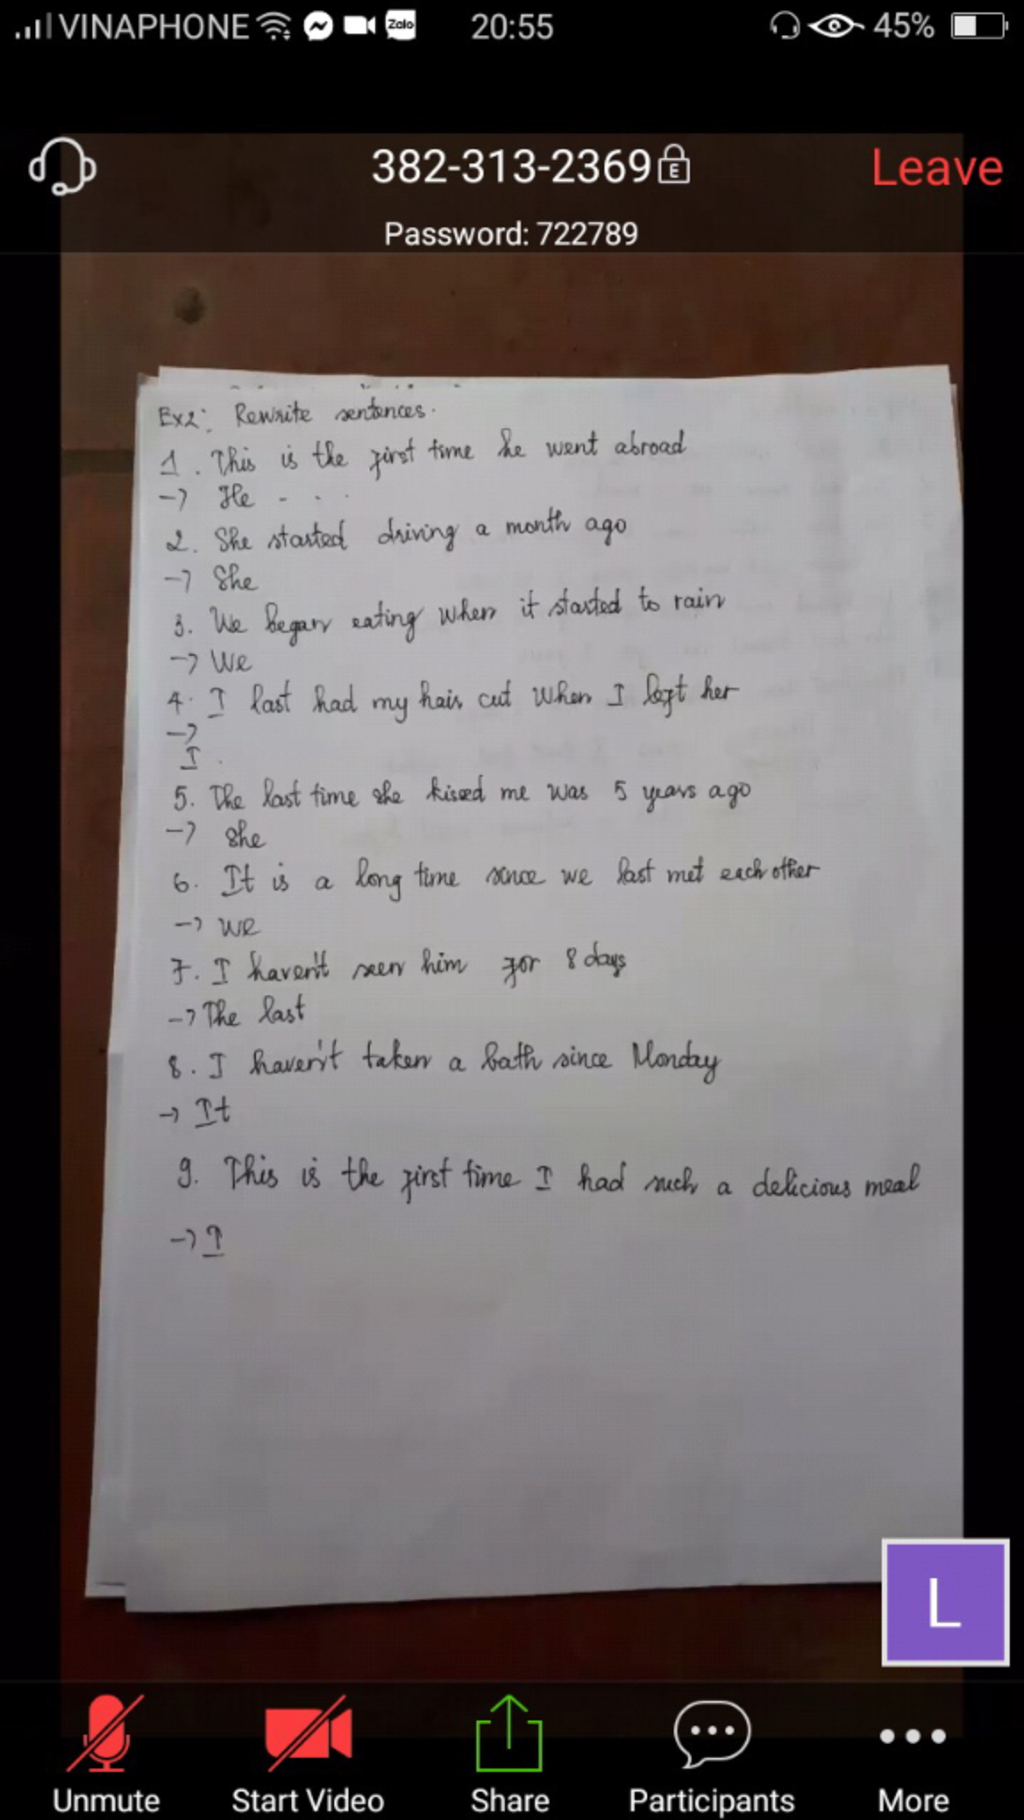 VINAPHONE Zalo 20:55 45%
382-313-2369 E Leave
Password: 722789
Ex2: Rewrite sentences.
1. This is the first time he went abroad
-> He - . .
2. She started driving a month ago
-> She
3. We began eating when it started to rain
-> We
4. I last had my hair cut when I left her
->
I.
5. The last time she kised me was 5 years ago
-> She
6. It is a long time since we last met each other
-> We
7. I haven't seen him for 8 days
-> The last
8. I haven't taken a bath since Monday
-> It
9. This is the first time I had such a delicious meal
-> I
L
Unmute Start Video Share Participants More